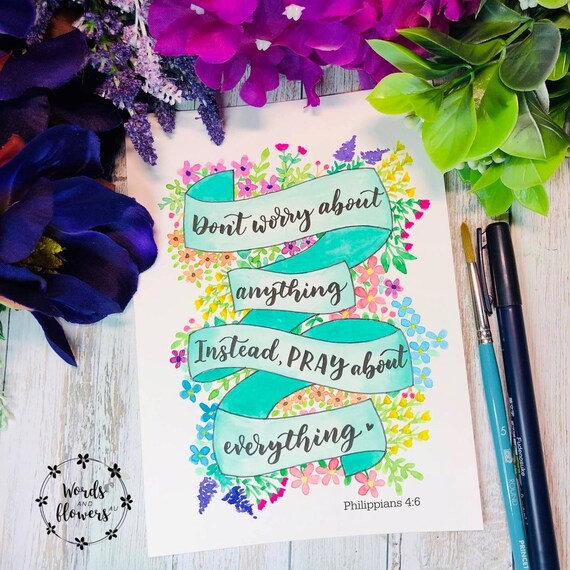 Dont worry about
anything
Instead, PRAY about
everything
Philippians 4:6
Words
AND
flowers AU
5
Fudenosuke
PRINCET